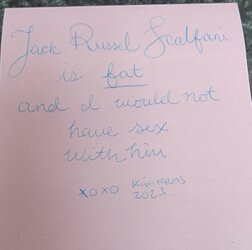 Jack Russel Scalfani
is fat
and I would not
have sex
with him
xoxo Kiwifarms
2021